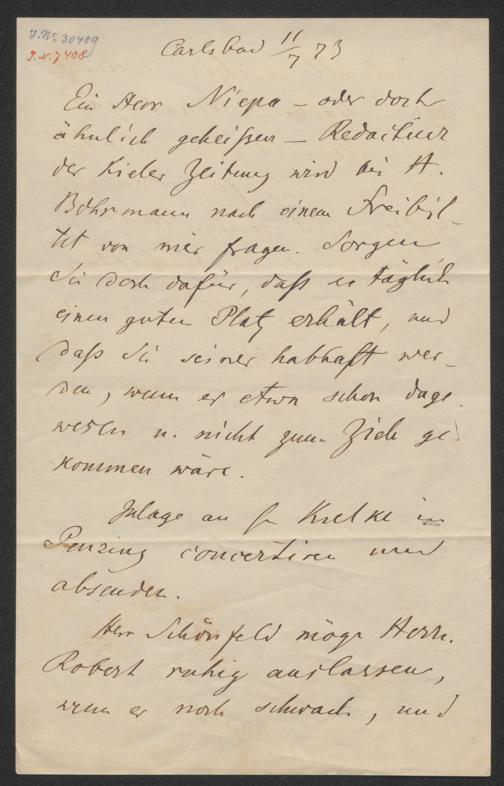 J.N° 30489
J.N. 7408
Carlsbad 11/7 73
Ein Herr Niepa – oder doch
ähnlich geheißen – Redacteur
der Kieler Zeitung wird bei H.
Bohrmann nach einem Freibil-
let von mir fragen. Sorgen
Sie doch dafür, daß er täglich
einen guten Platz erhält, und
daß Sie seiner habhaft wer-
den, wenn er etwa schon dage-
wesen u. nicht zum Ziele ge
kommen wäre.
Inlage an Kuelke in
Penzing couvertiren und
absenden.
Herr Schönfeld möge Herrn
Robert ruhig auslassen,
wenn er noch schwach, und